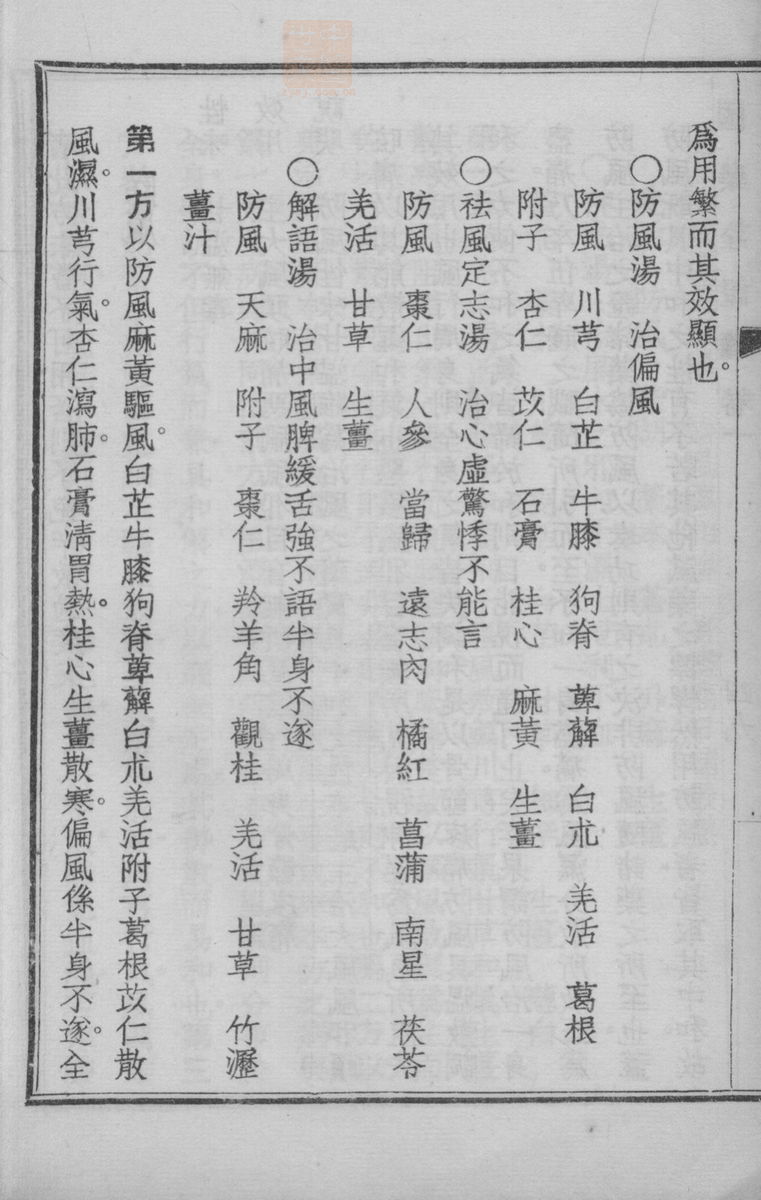 爲用繁而其效顯也。
〇防風湯　治偏風
防風　川芎　白芷　牛膝　狗脊　萆薢　白朮　羌活　葛根
附子　杏仁　苡仁　石膏　桂心　麻黃　生薑
〇祛風定志湯　治心虛驚悸不能言
防風　棗仁　人參　當歸　遠志肉　橘紅　菖蒲　南星　茯苓
羌活　甘草　生薑
〇解語湯　治中風脾緩舌強不語半身不遂
防風　天麻　附子　棗仁　羚羊角　觀桂　羌活　甘草　竹瀝
薑汁
第一方以防風麻黃驅風。白芷牛膝狗脊萆薢白朮羌活附子葛根苡仁散
風濕。川芎行氣。杏仁瀉肺。石膏清胃熱。桂心生薑散寒。偏風係半身不遂。全